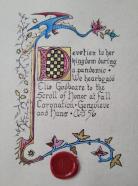 Devotion to her
kingdom during
a pandemic •
We hereby add
Elis Godboare to the
Scroll of Honor at Fall
Coronation • Genevieve
and Manus •